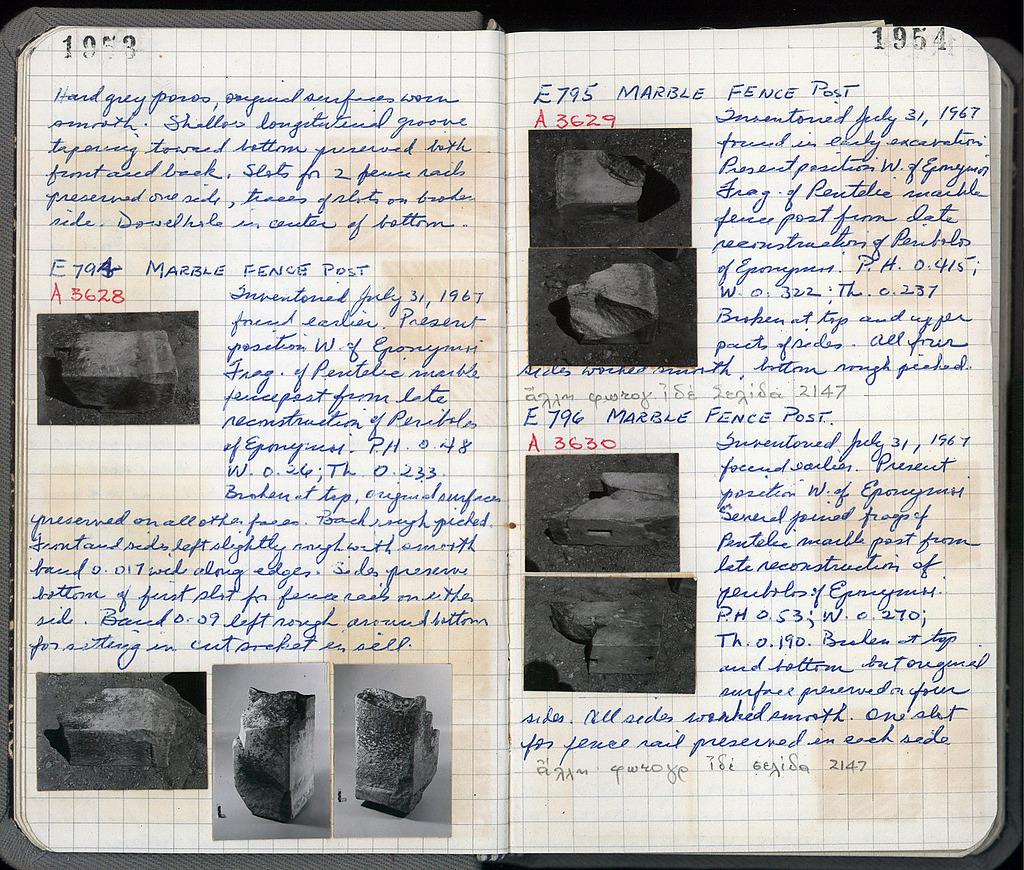 1953
Hard grey poros, original surfaces worn
smooth. Shallow longitudinal groove
tapering toward bottom preserved both
front and back. Slots for 2 fence rails
preserved one side, traces of slots on broken
side. Dowel hole in center of bottom.
E 794 MARBLE FENCE POST
A 3628
Inventoried July 31, 1967
found earlier. Present
position W. of Eponymoi
Frag. of Pentelic marble
fence post from late
reconstruction of Peribolos
of Eponymoi. P.H. 0.48
W. 0.26; Th. 0.233
Broken at top, original surfaces
preserved on all other faces. Back rough picked.
Front and sides left slightly rough with smooth
band 0.017 wide along edges. Sides preserve
bottom of first slot for fence rails on either
side. Band 0.09 left rough around bottom
for setting in cut socket in sill.
1954
E 795 MARBLE FENCE POST
A 3629
Inventoried July 31, 1967
found in early excavation
Present position W. of Eponymoi
Frag. of Pentelic marble
fence post from late
reconstruction of Peribolos
of Eponymoi. P.H. 0.415;
W. 0.322; Th. 0.237
Broken at top and upper
parts of sides. All four
sides worked smooth, bottom rough picked.
ἄλλη φωτογ ἰδὲ Σελίδα 2147
E 796 MARBLE FENCE POST.
A 3630
Inventoried July 31, 1967
found earlier. Present
position W. of Eponymoi
Several joined frags of
Pentelic marble post from
late reconstruction of
peribolos of Eponymoi.
P.H 0.53; W. 0.270;
Th. 0.190. Broken at top
and bottom but original
surface preserved on four
sides. All sides worked smooth. One slot
for fence rail preserved in each side
ἄλλη φωτογρ ἰδὲ σελίδα 2147